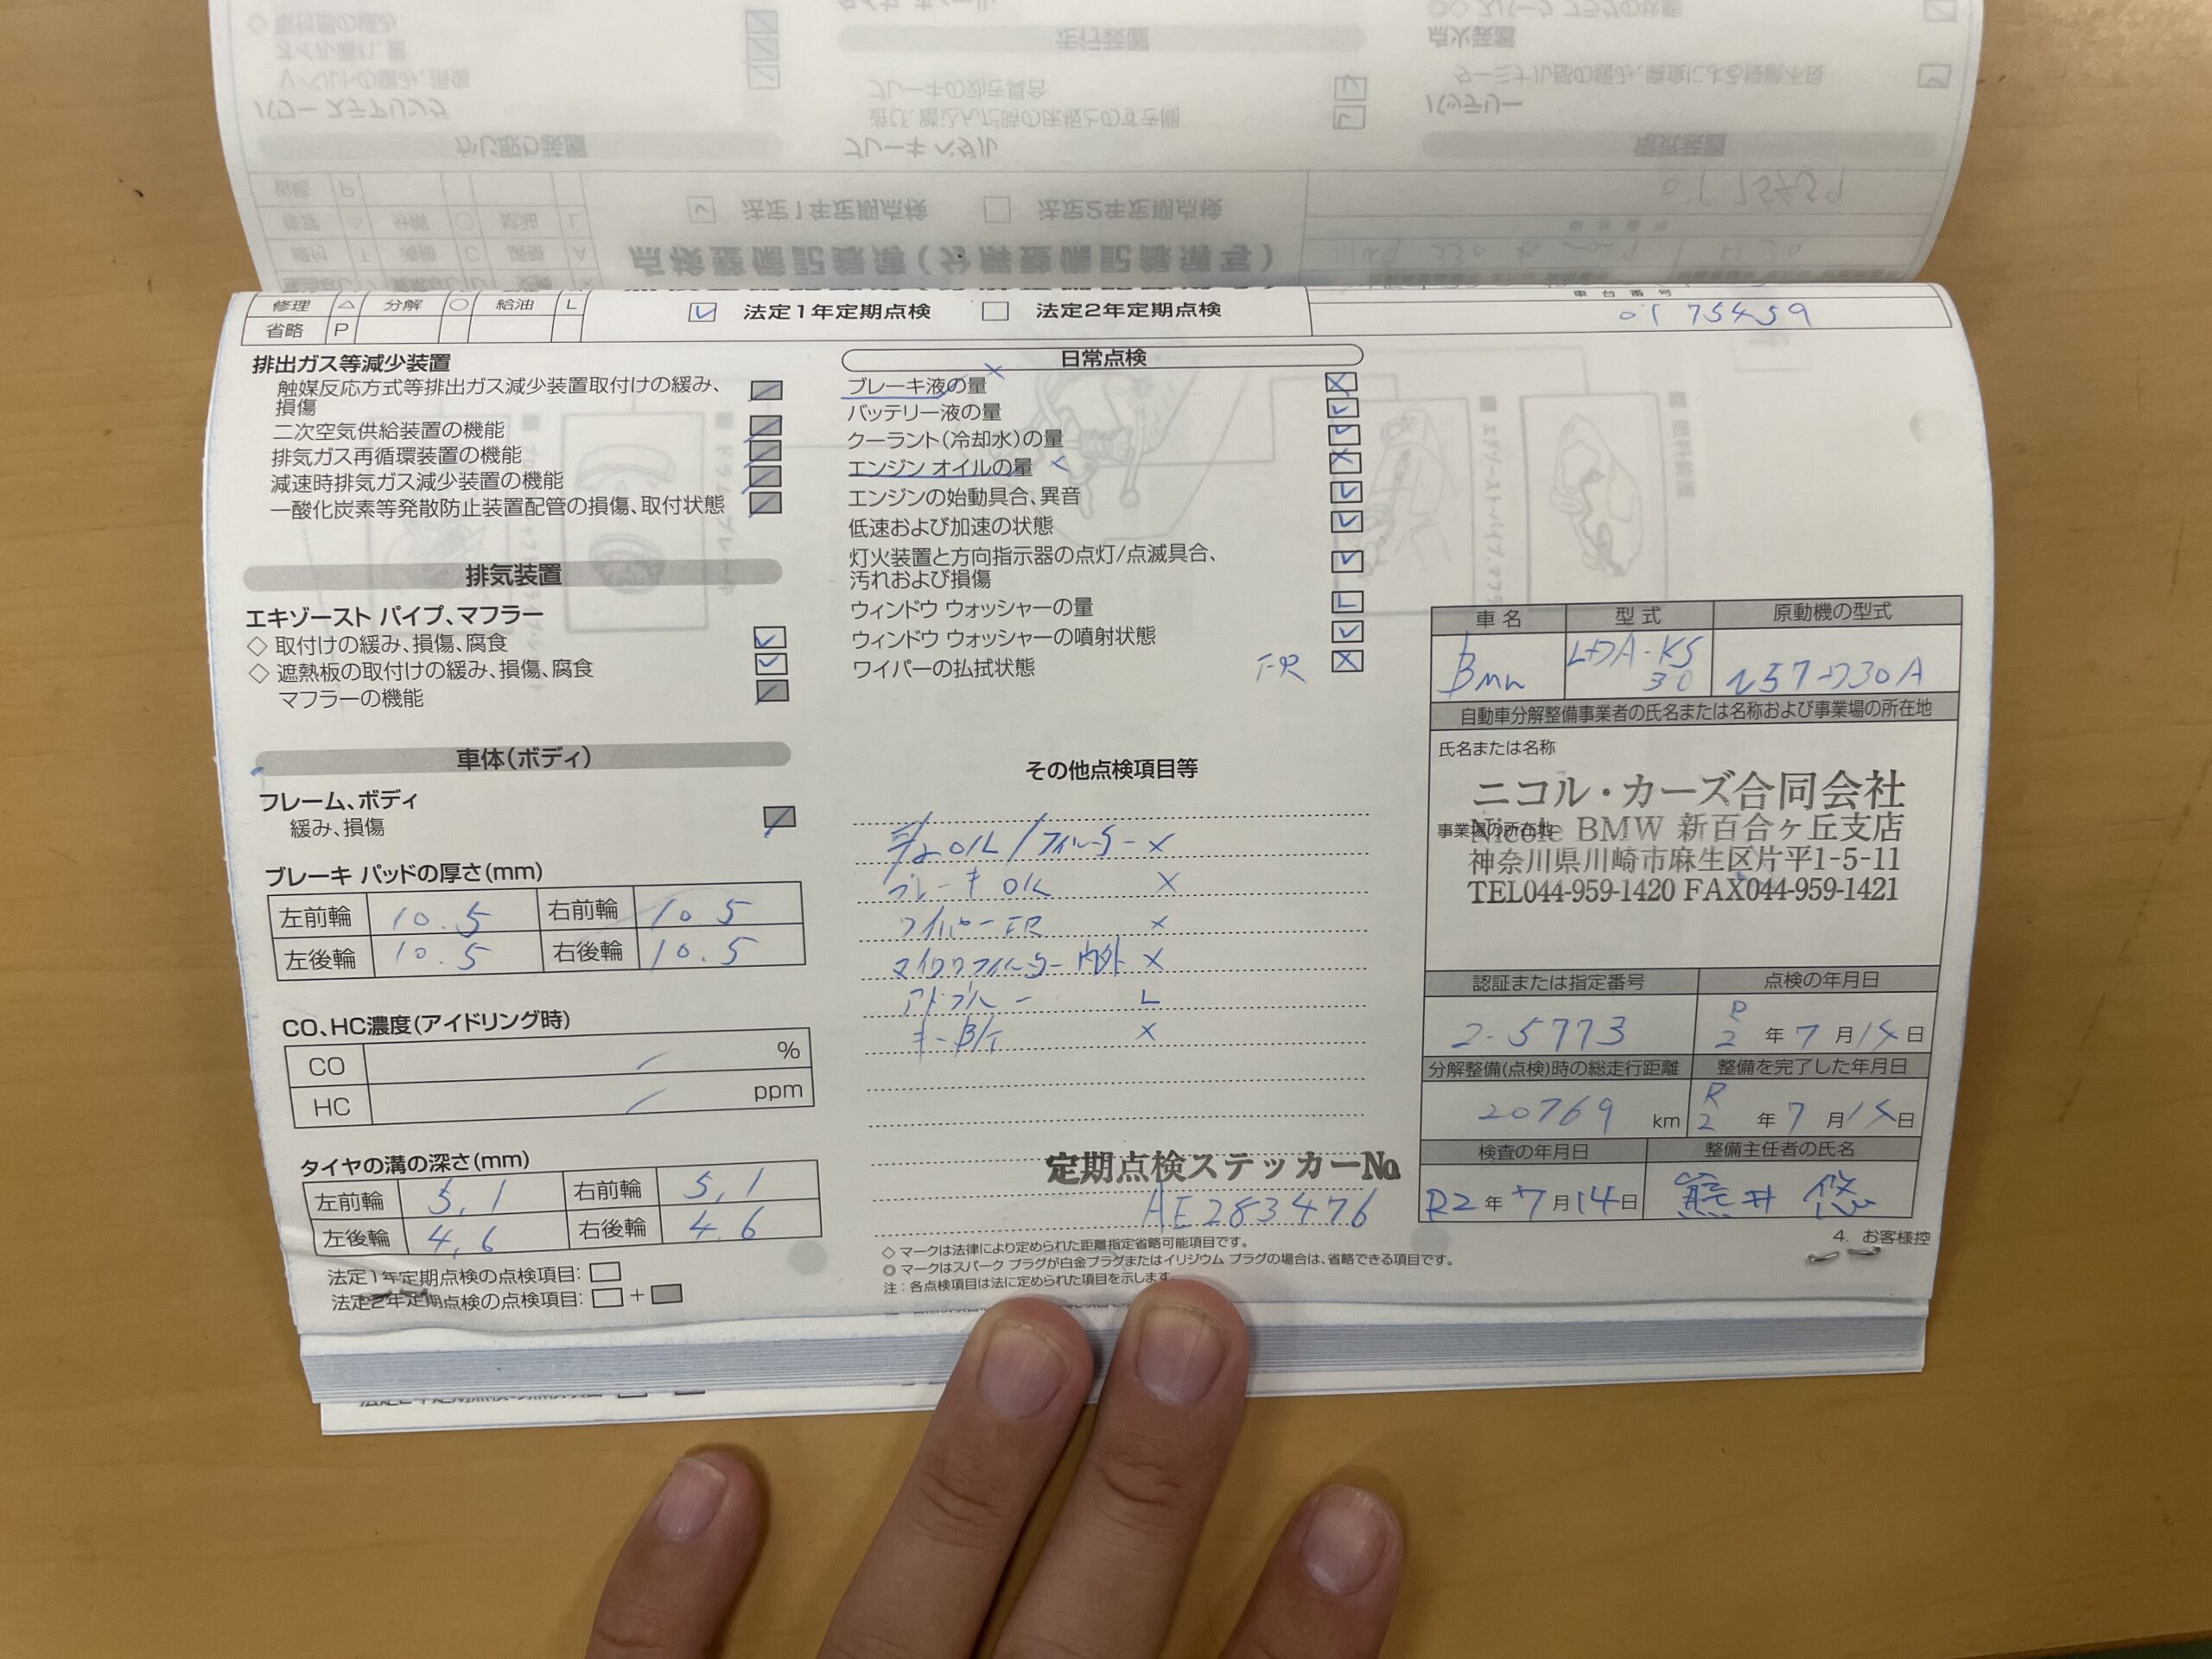 修理 △ 分解 ○ 給油 L
省略 P
法定1年定期点検 法定2年定期点検
車台番号
75459
排出ガス等減少装置
触媒反応方式等排出ガス減少装置取付けの緩み、
損傷
二次空気供給装置の機能
排気ガス再循環装置の機能
減速時排気ガス減少装置の機能
一酸化炭素等発散防止装置配管の損傷、取付状態
排気装置
エキゾースト パイプ、マフラー
◇ 取付けの緩み、損傷、腐食
◇ 遮熱板の取付けの緩み、損傷、腐食
マフラーの機能
車体(ボディ)
フレーム、ボディ
緩み、損傷
ブレーキ パッドの厚さ(mm)
左前輪 10.5 右前輪 10.5
左後輪 10.5 右後輪 10.5
CO、HC濃度(アイドリング時)
CO %
HC ppm
タイヤの溝の深さ(mm)
左前輪 5,1 右前輪 5,1
左後輪 4,6 右後輪 4.6
法定1年定期点検の点検項目:
法定2年定期点検の点検項目: +
日常点検
ブレーキ液の量 ×
バッテリー液の量
クーラント(冷却水)の量
エンジン オイルの量 ×
エンジンの始動具合、異音
低速および加速の状態
灯火装置と方向指示器の点灯/点滅具合、
汚れおよび損傷
ウィンドウ ウォッシャーの量 L
ウィンドウ ウォッシャーの噴射状態
ワイパーの払拭状態 F・R ×
その他点検項目等
OIL/フィルター ×
ブレーキ ×
ワイパー FR ×
マイクロフィルター 内外 ×
アドブルー L
キーB/T ×
定期点検ステッカーNo
HE283476
◇ マークは法律により定められた距離指定省略可能項目です。
◎ マークはスパーク プラグが白金プラグまたはイリジウム プラグの場合は、省略できる項目です。
注：各点検項目は法に定められた項目を示します。
車名 型式 原動機の型式
BMW LDA-KS30 N57-D30A
自動車分解整備事業者の氏名または名称および事業場の所在地
氏名または名称
ニコル・カーズ合同会社
事業場の所在地
Nicole BMW 新百合ヶ丘支店
神奈川県川崎市麻生区片平1-5-11
TEL044-959-1420 FAX044-959-1421
認証または指定番号 点検の年月日
2-5773 R2年7月14日
分解整備(点検)時の総走行距離 整備を完了した年月日
20769 km R2年7月14日
検査の年月日 整備主任者の氏名
R2年7月14日 熊井 悠
4. お客様控